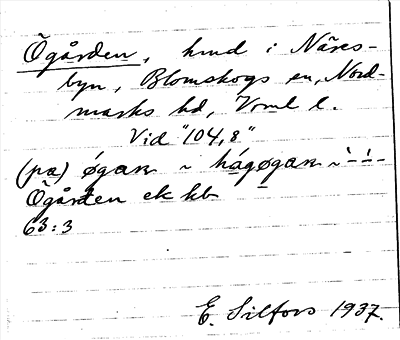 Ögården, hmd i Näres-
byn, Blomskogs sn, Nord-
marks hd, Vrml l.
Vid "104,8"
(pa) øgaʀn ~ hágøgaʀn ~ '-'-
Ögården ek kb
63:3
E. Silfors 1937.